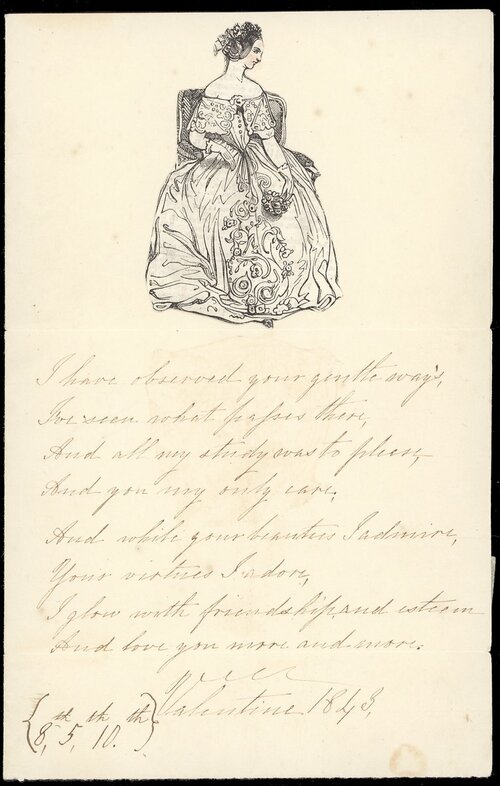 I have observed your gentle ways,
I've seen what passes there,
And all my study was to please,
And you my only care.
And while your beauties I admire,
Your virtues I adore,
I glow with friendship, and esteem
And love you more and more.
Valentine 1843.
{8,th 5,th 10.th}